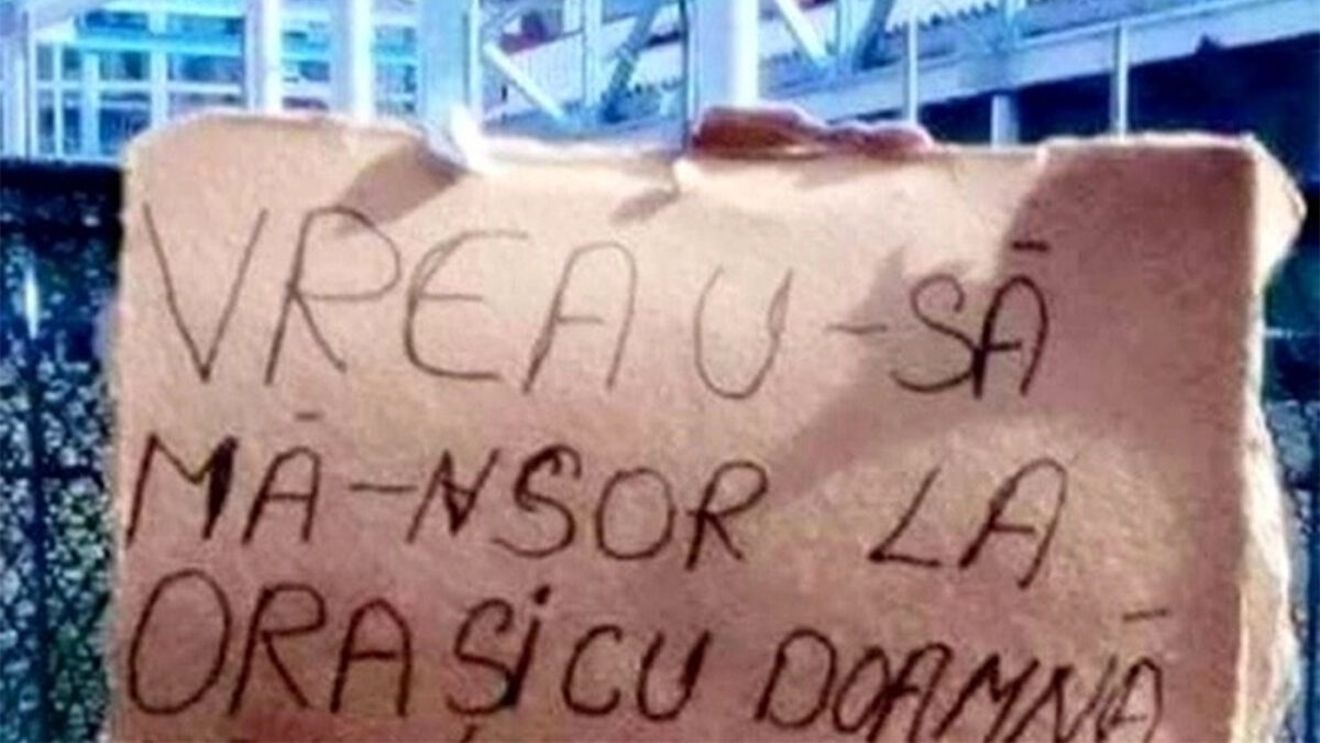 VREAU-SĀ
MĀ-NSOR LA
ORAȘiCU DOAMNĀ